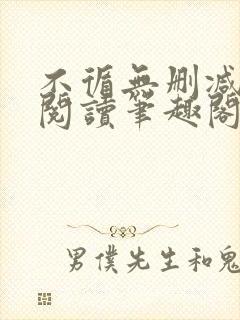 不循無删减
閱讀筆趣閣
男僕先生和鬼